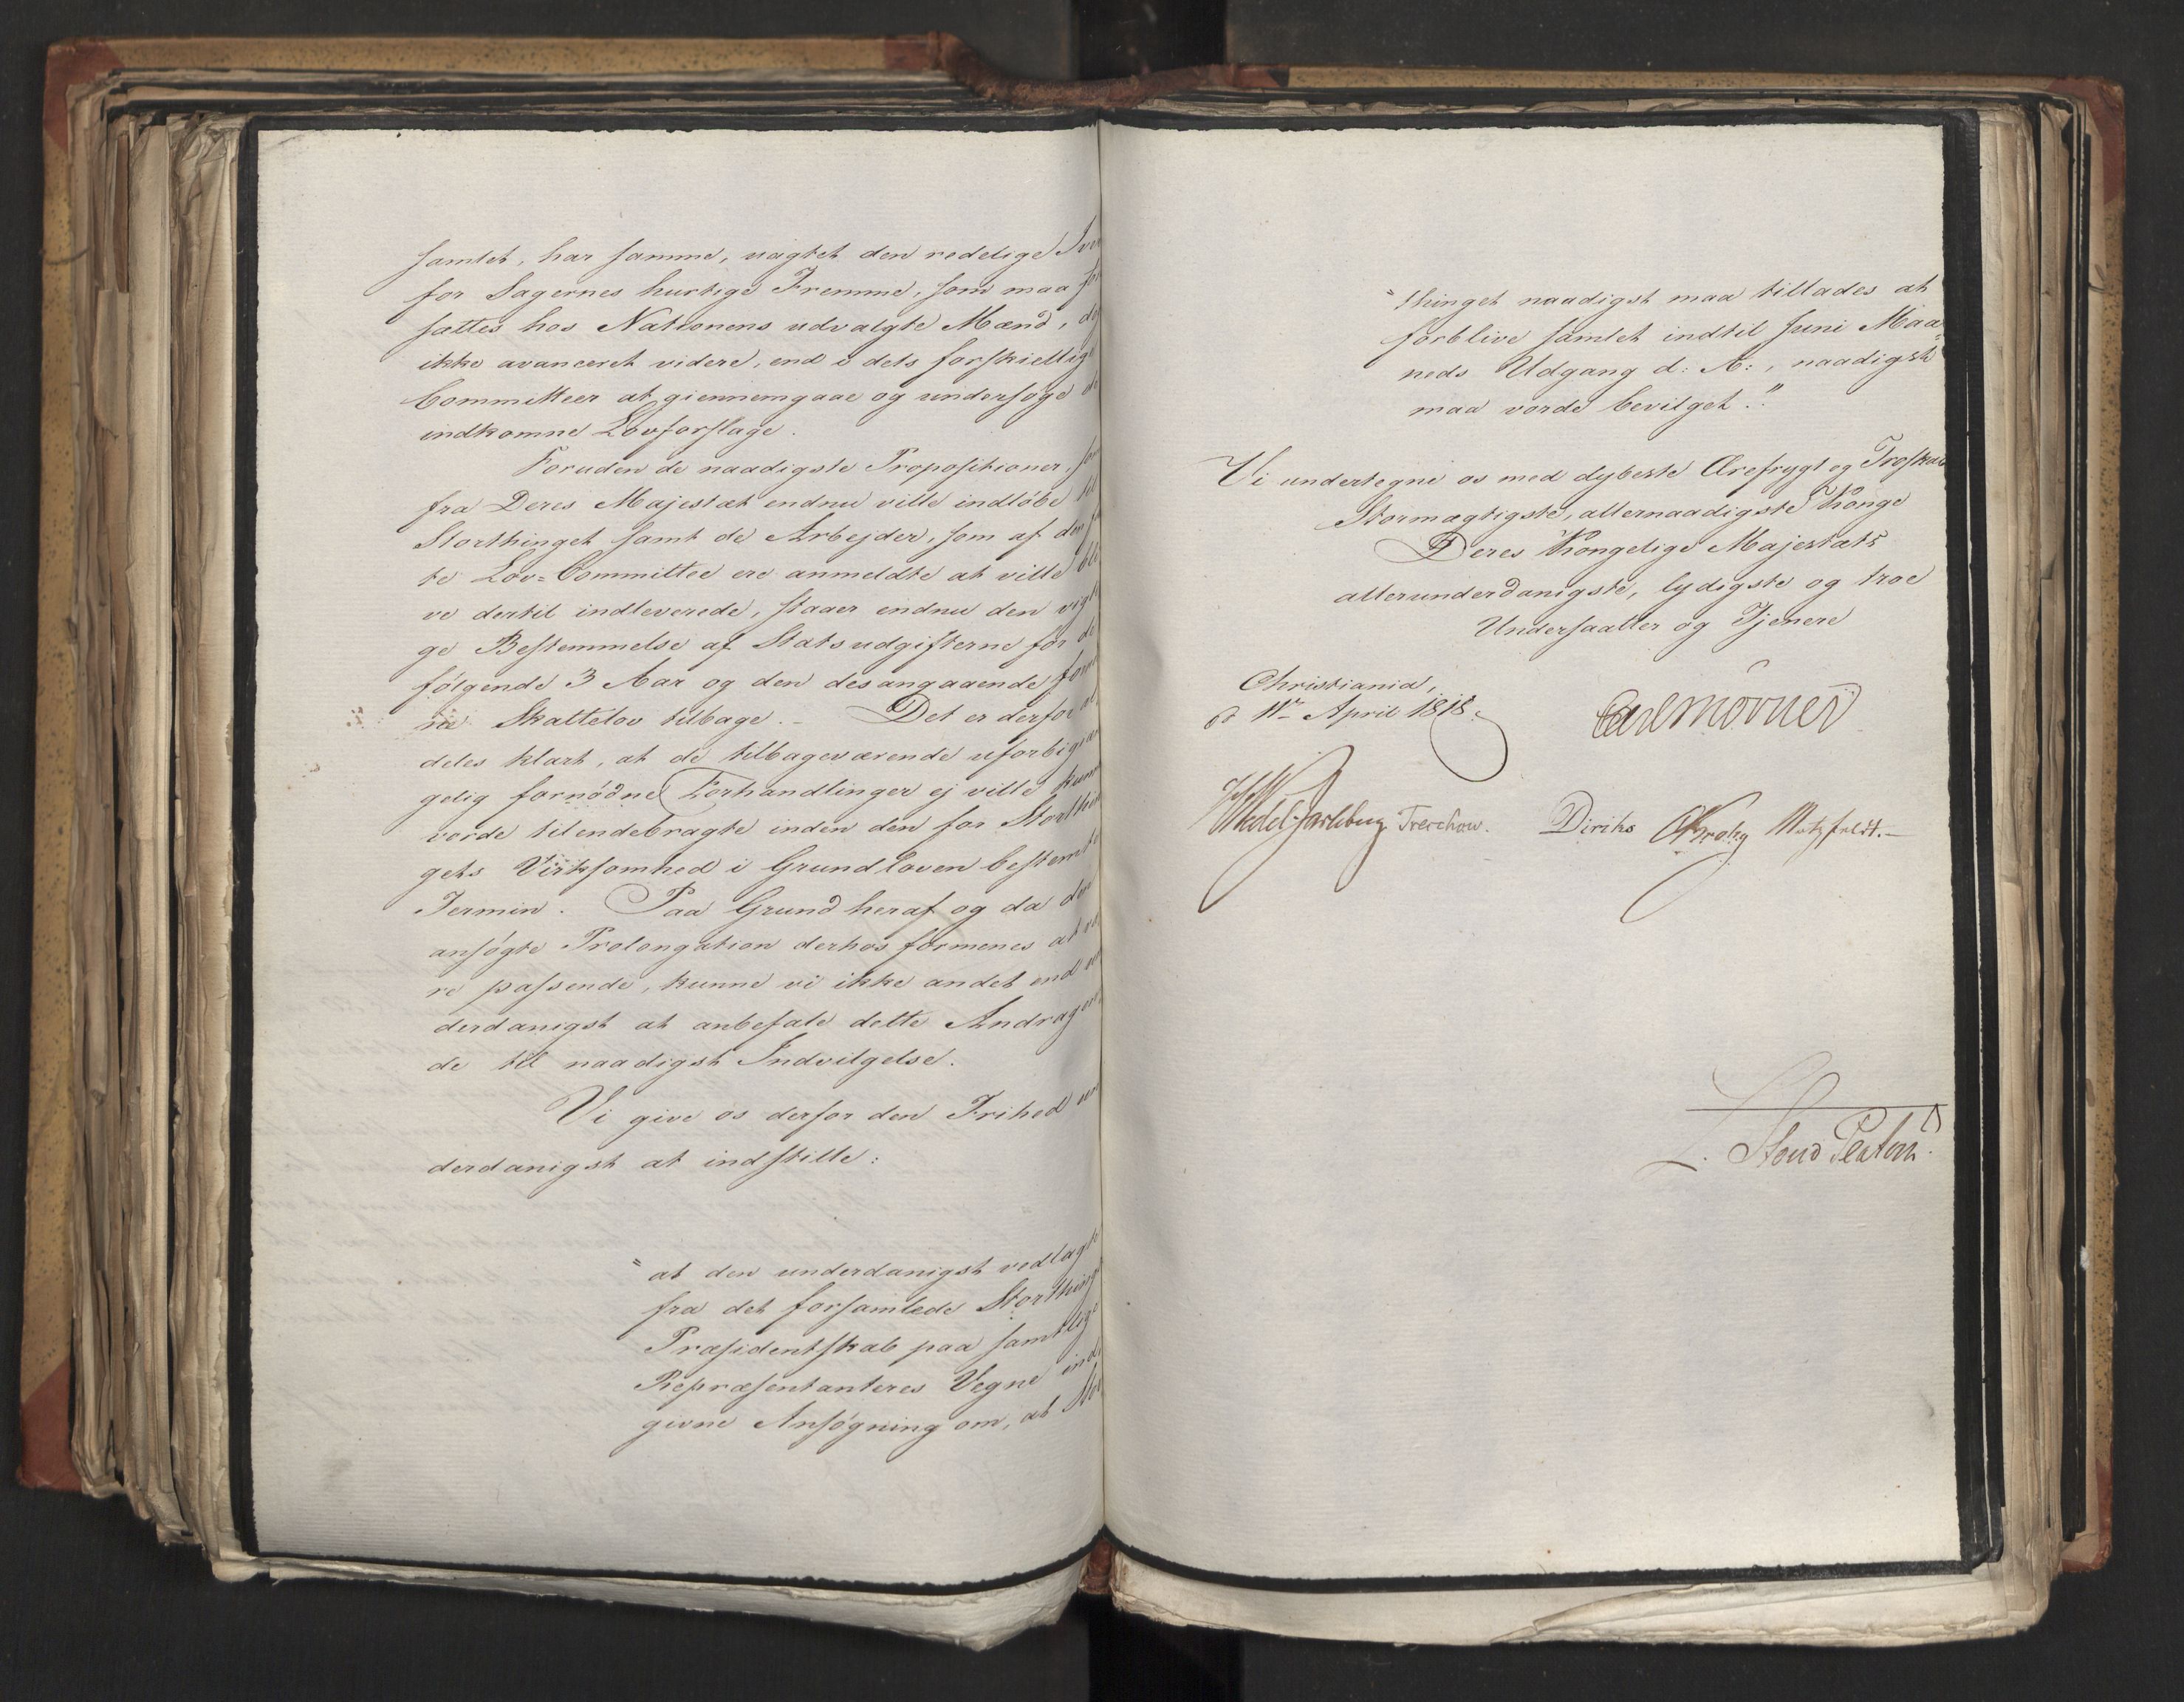 samlet, har samme, uagtet den redelige Iver
for Sagernes hurtige Fremme, som maa for
sættes hos Nationens udvalgte Mænd,
ikke avanceret videre, end i dets forskiellige
Committeer at giennemgaae og undersøge de
indkomne Lovforslage.
Foruden de naadigste Propositioner, som
fra Deres Majestæt endnu ville indløbe til
Storthinget samt de Arbejder, som af den
te Lov-Committee ere anmeldte at ville bli
ve dertil indleverede, staaer endnu den vigti
ge Bestemmelse af Statsudgifterne for de
følgende 3 Aar og den desangaaende forn
ne Skattelov tilbage. – Det er derfor al
deles klart, at de tilbageværende uforbigiæn
gelig fornødne Forhandlinger ej ville kunne
vorde tilendebragte inden den for Storthin
gets Virksomhed i Grundloven bestemte
Termin. Paa Grund heraf og da den
ansøgte Prolongation derhos formenes at væ
re passende, kunne vi ikke andet end un
derdanigst at anbefale dette Andragen
de til naadigst Indvilgelse.
Vi give os derfor den Frihed un
derdanigst at indstille:
"at den underdanigst vedlagte
fra det forsamlede Storthings
Præsidentskab paa samtlige
Repræsentanteres Vegne ind
givne Ansøgning om, at Stor
"thinget naadigst maa tillades at
forblive samlet indtil Juni Maa=
neds Udgang d: A:, naadigst
maa vorde bevilget."
Vi undertegne os med dybeste Ærefrygt og Troskab
Stormægtigste, allernaadigste Konge
Deres Kongelige Majestæts
allerunderdanigste, lydigste og troe
Undersaatter og Tjenere
Christiania,
d 11te April 1818.
Carl Mörner
HWedel Jarlsberg Treschow. Diriks CKrohg Motzfeldt.–
L. Stoud Platou